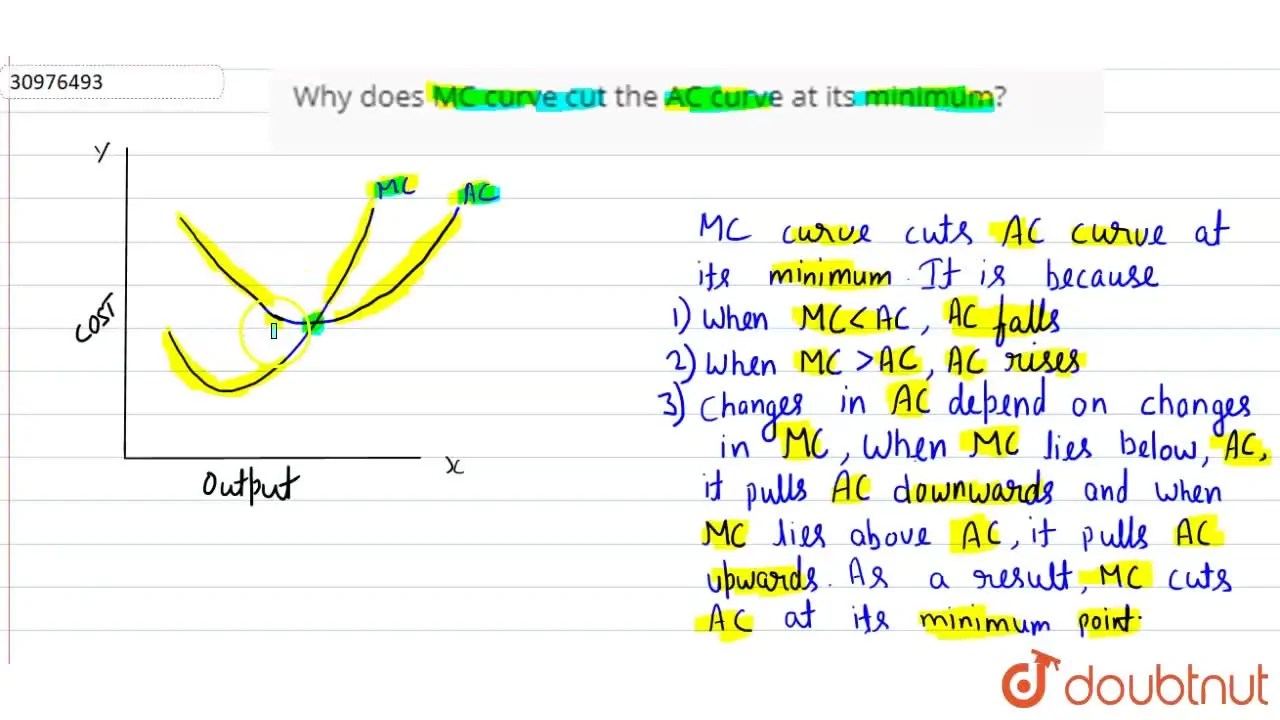 30976493
Why does MC curve cut the AC curve at its minimum?
Y
MC
AC
COST
X
Output
MC curve cuts AC curve at
its minimum. It is because
1) When MC < AC, AC falls
2) When MC > AC, AC rises
3) Changes in AC depend on changes
in MC, When MC lies below, AC,
it pulls AC downwards and when
MC lies above AC, it pulls AC
upwards. As a result, MC cuts
AC at its minimum point.
doubtnut